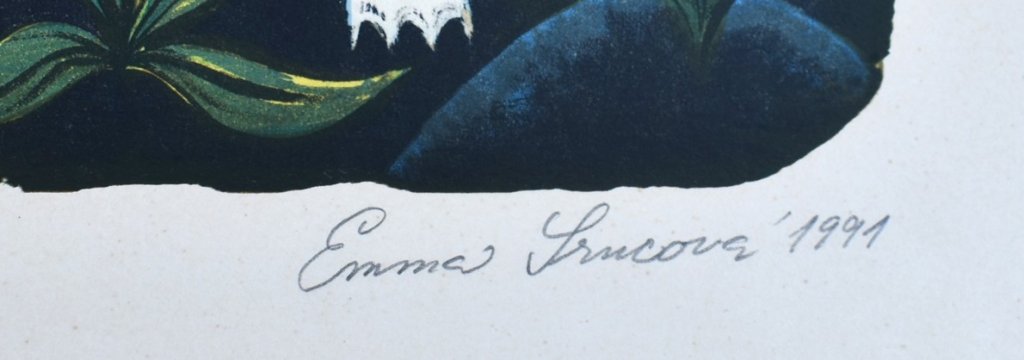 Emma Srncová 1991